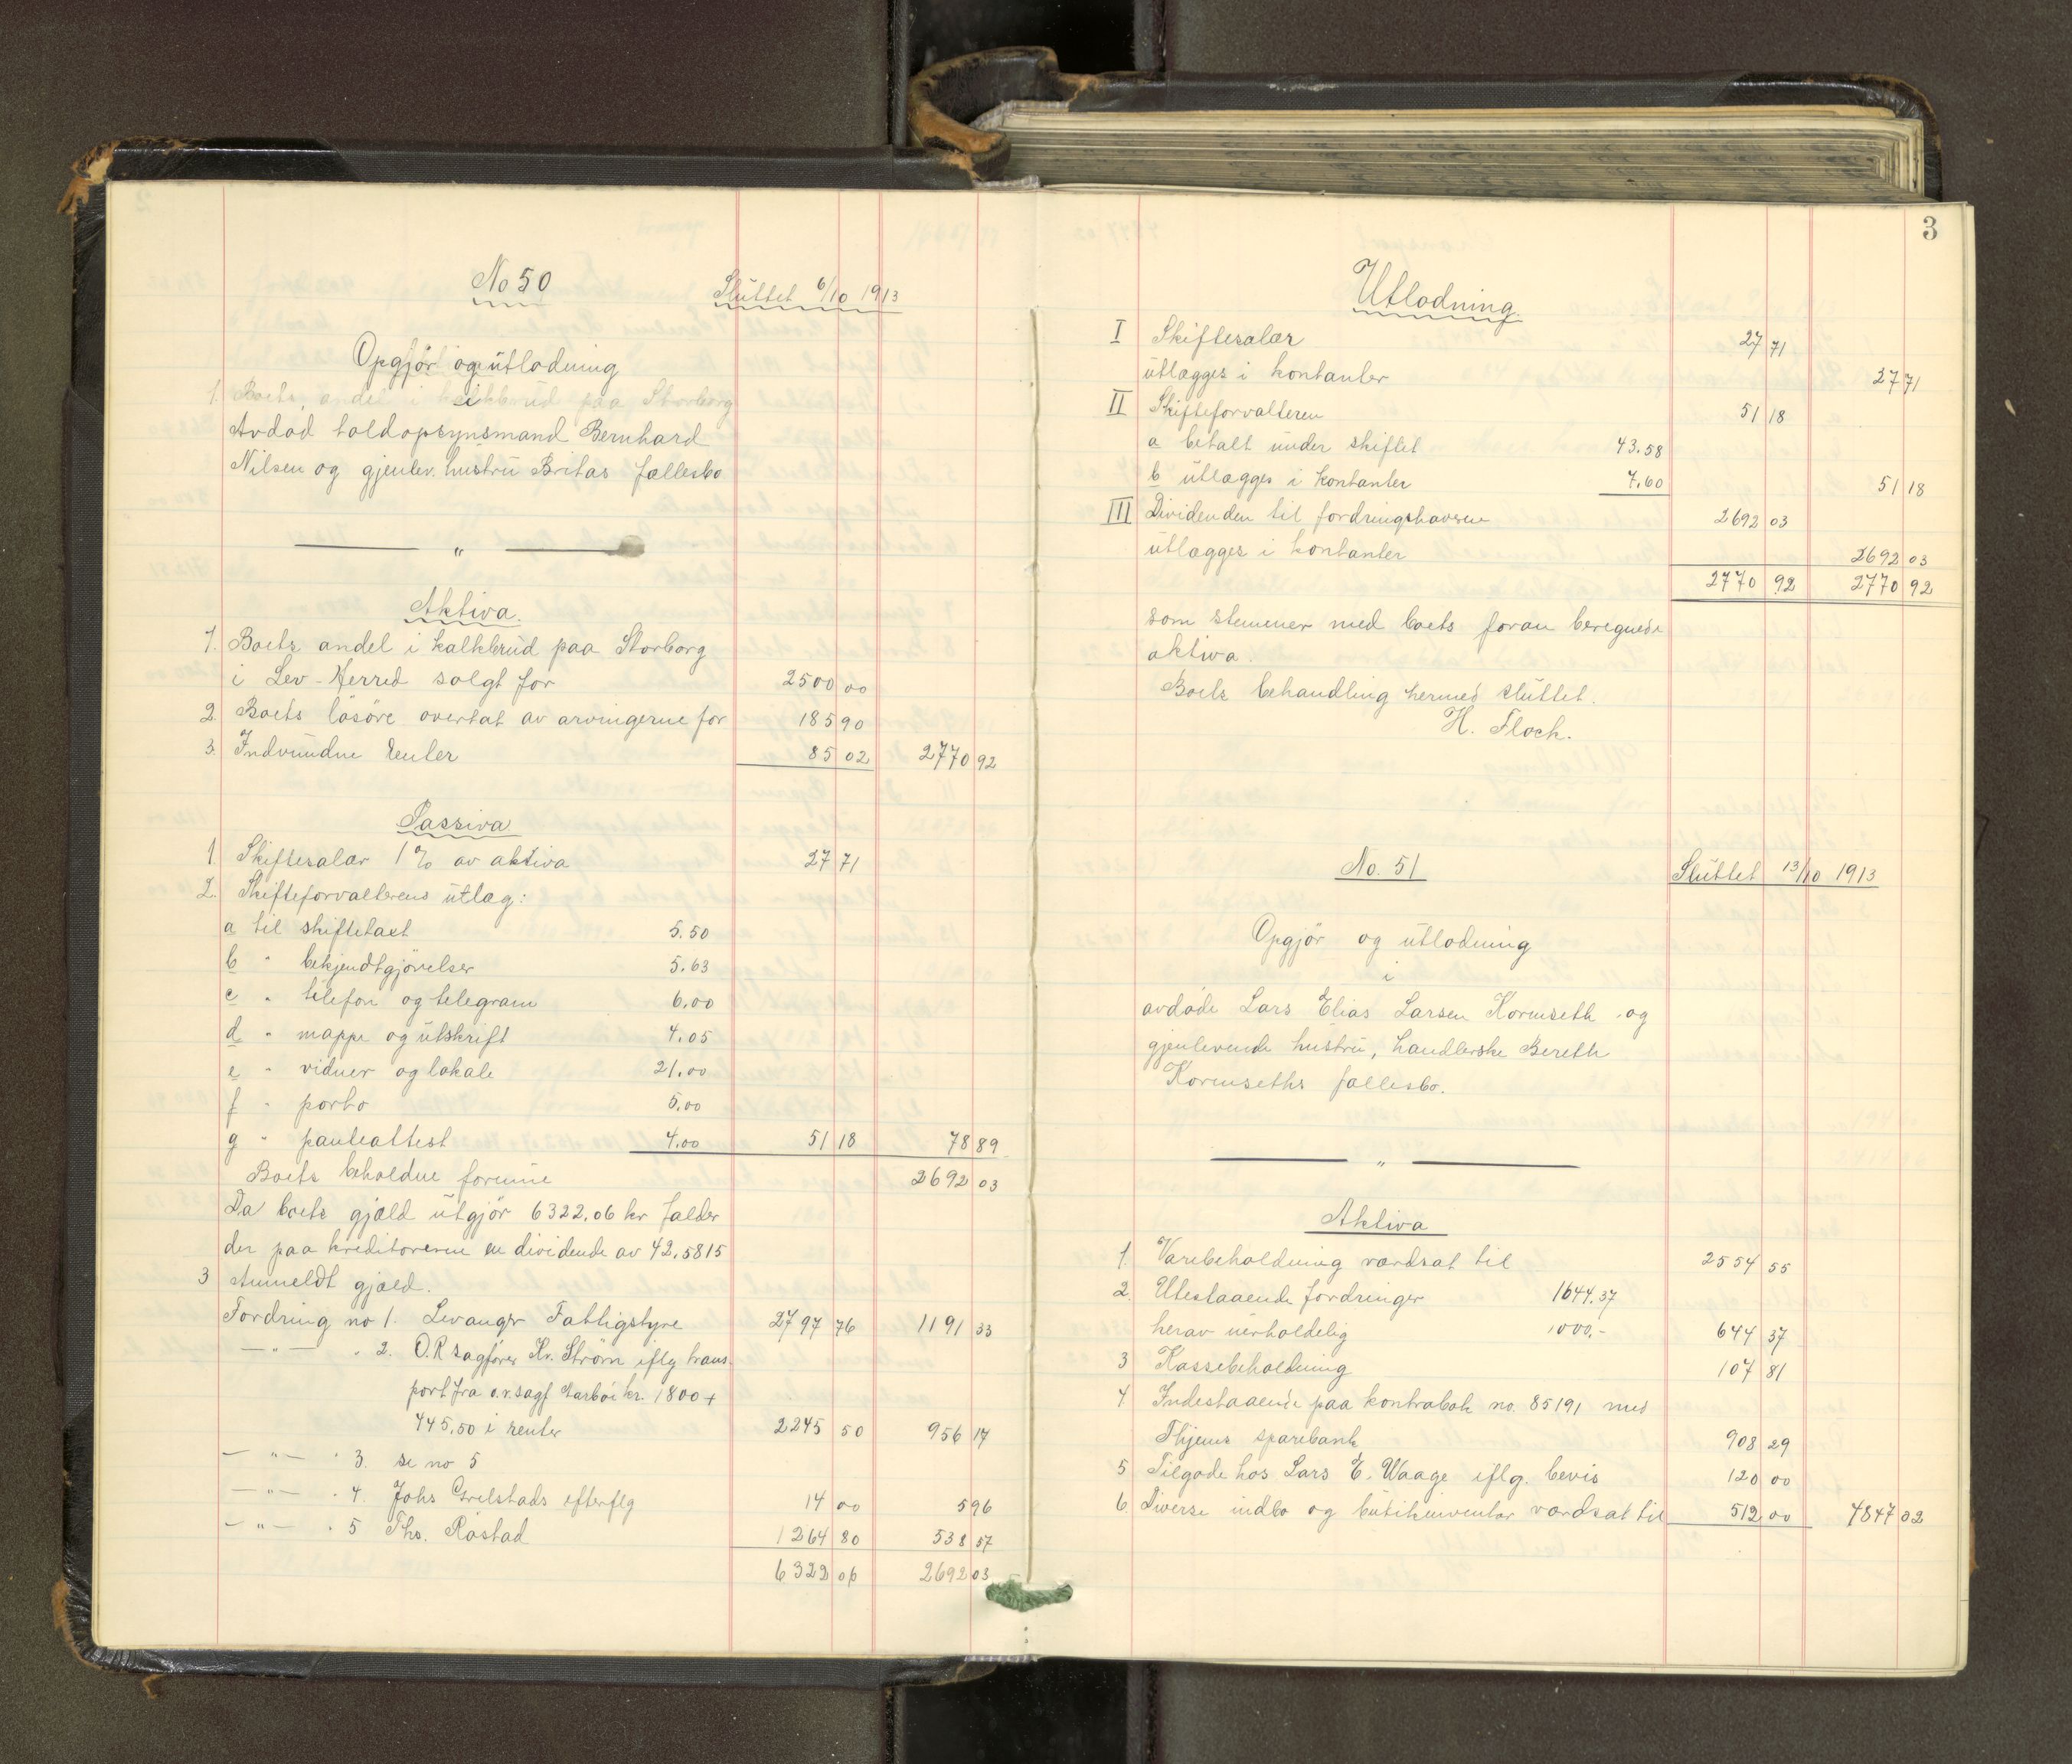 No 50 Sluttet 6/10 1913
Opgjör og utlodning
i
1. Boets andel i kalkbrud paa Storborg
Avdöd toldopsynsmand Bernhard
Nilsen og gjenlev. hustru Britas fællesbo
— " —
Aktiva.
1. Boets andel i kalkbrud paa Storborg
i Lev-Herred solgt for 2500 00
2. Boets lösöre overtat av arvingerne for 185 90
3. Indvundne renter 85 02 2770 92
Passiva
1 Skiftesalær 1% av aktiva 27 71
2. Skifteforvalterens utlæg:
a til skiftetaxt 5.50
b " bekjendtgjörelser 5.63
c " telefon og telegram 6.00
d " mappe og utskrift 4.05
e " vidner og lokale 21.00
f " porto 5.00
g " panteattest 4.00 51 18 78 89
Boets beholdne formue 2692 03
Da boets gjæld utgjör 6322,06 kr falder
der paa kreditorerne en dividende av 42.5815
3 Anmeldt gjæld.
Fordring no 1. Levanger Fattigstyre 2797 76 1191 33
— " — " 2. O.R sagförer Kr. Ström iflg trans-
port fra o.r.sagf Aarbö kr. 1800 +
445,50 i renter 2245 50 956 17
— " — " 3. se no 5
— " — " 4. Johs Grelstads efterflg 14 00 5 96
— " — " 5 Ths. Röstad 1264 80 538 57
6322 06 2692 03
3
Utlodning.
I Skiftesalær 27 71
utlægges i kontanter 27 71
II Skifteforvalteren 51 18
a betalt under skiftet 43.58
b utlægges i kontanter 7.60 51 18
III Dividenden til fordringshaverne 2692 03
utlægges i kontanter 2692 03
2770 92 2770 92
som stemmer med boets foran beregnede
aktiva.
Boets behandling hermed sluttet.
H. Floch.
No. 51 Sluttet 13/10 1913
Opgjör og utlodning
i
avdöde Lars Elias Larsen Kormseth og
gjenlevende hustru, handlerske Bereth
Kormseths fællesbo.
— " —
Aktiva
1. Varebeholdning værdsat til 2554 55
2. Utestaaende fordringer 1644.37
herav uerholdelig 1000,- 644 37
3 Kassebeholdning 107 81
4 Indestaaende paa kontrabok no. 85191 med
Thjems sparebank 908 29
5 Tilgode hos Lars E. Waage iflg. bevis 120 00
6. Diverse indbo og butikinventar værdsat til 512 00 4847 02